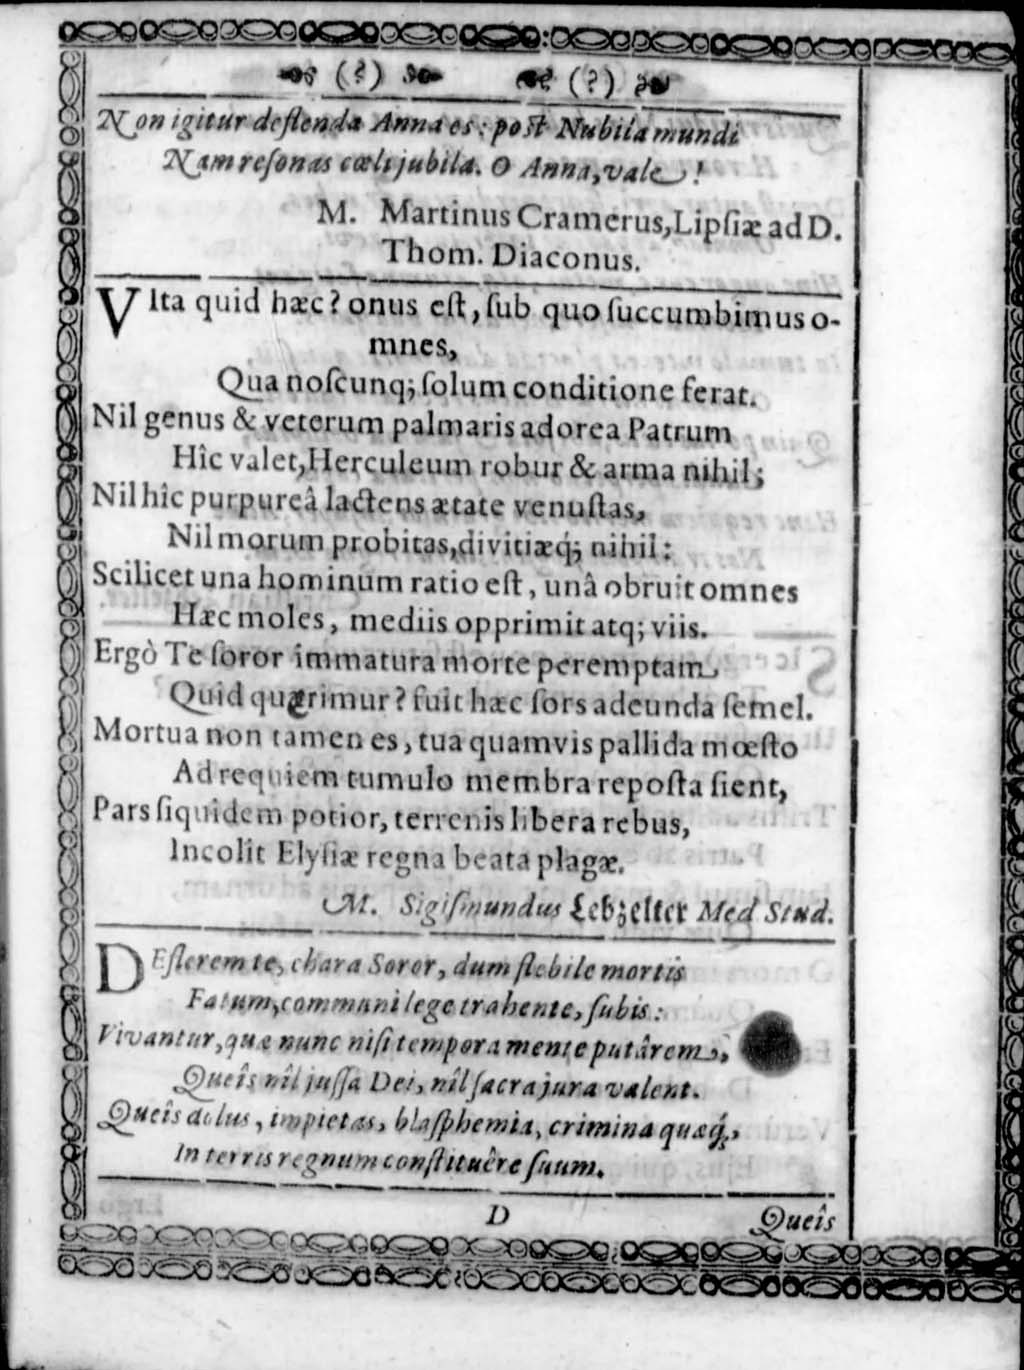 (?) (?)
Non igitur deflenda Anna es: post Nubila mundi
Nam resonas cœli jubila. O Anna, vale!
M. Martinus Cramerus, Lipsiæ ad D.
Thom. Diaconus.
VIta quid hæc? onus est, sub quo succumbimus o-
mnes,
Qua noscunq; solum conditione ferat.
Nil genus & veterum palmaris adorea Patrum
Hîc valet, Herculeum robur & arma nihil;
Nil hîc purpureâ lactens ætate venustas,
Nil morum probitas, divitiæq; nihil:
Scilicet una hominum ratio est, unâ obruit omnes
Hæc moles, mediis opprimit atq; viis.
Ergò Te soror immatura morte peremptam
Quid quærimur? fuit hæc sors adeunda semel.
Mortua non tamen es, tua quamvis pallida mœsto
Ad requiem tumulo membra reposta sient,
Pars siquidem potior, terrenis libera rebus,
Incolit Elysiæ regna beata plagæ.
M. Sigismundus Lebzelter Med Stud.
DEflerem te, chara Soror, dum flebile mortis
Fatum, communi lege trahente, subis:
Vivantur, quæ nunc nisi tempora mente putârem,
Queîs nîl jussa Dei, nîl sacra jura valent.
Queîs dolus, impietas, blasphemia, crimina quæq;,
In terris regnum constituêre suum.
D Queîs